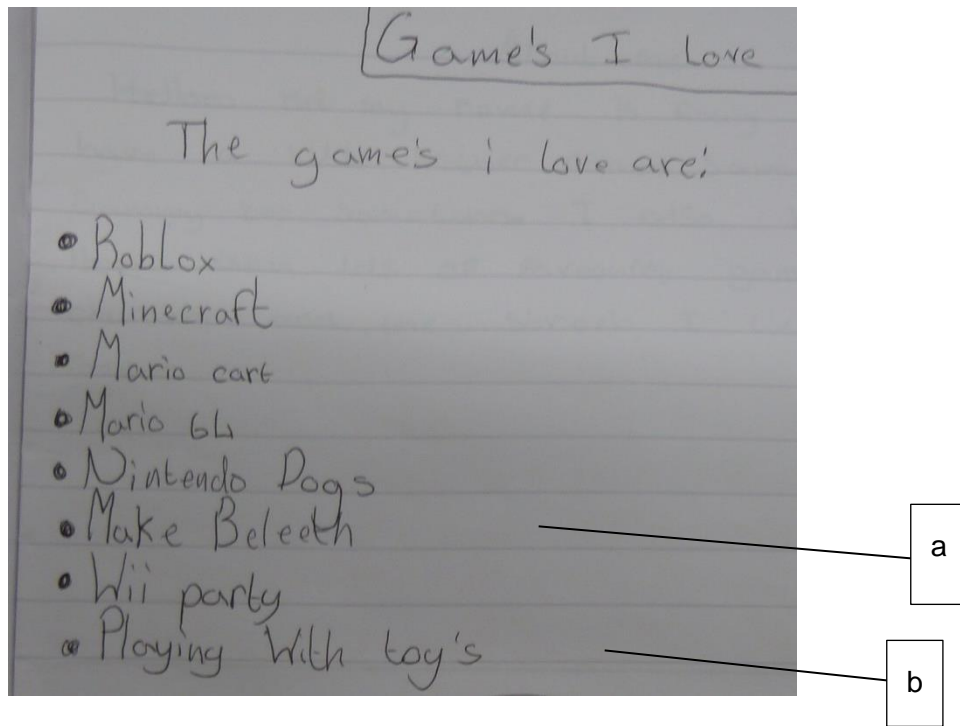 Game's I Love
The game's i love are:
• Roblox
• Minecraft
• Mario cart
• Mario 64
• Nintendo Dogs
• Make Beleeth
a
• Wii party
• Playing With toy's
b